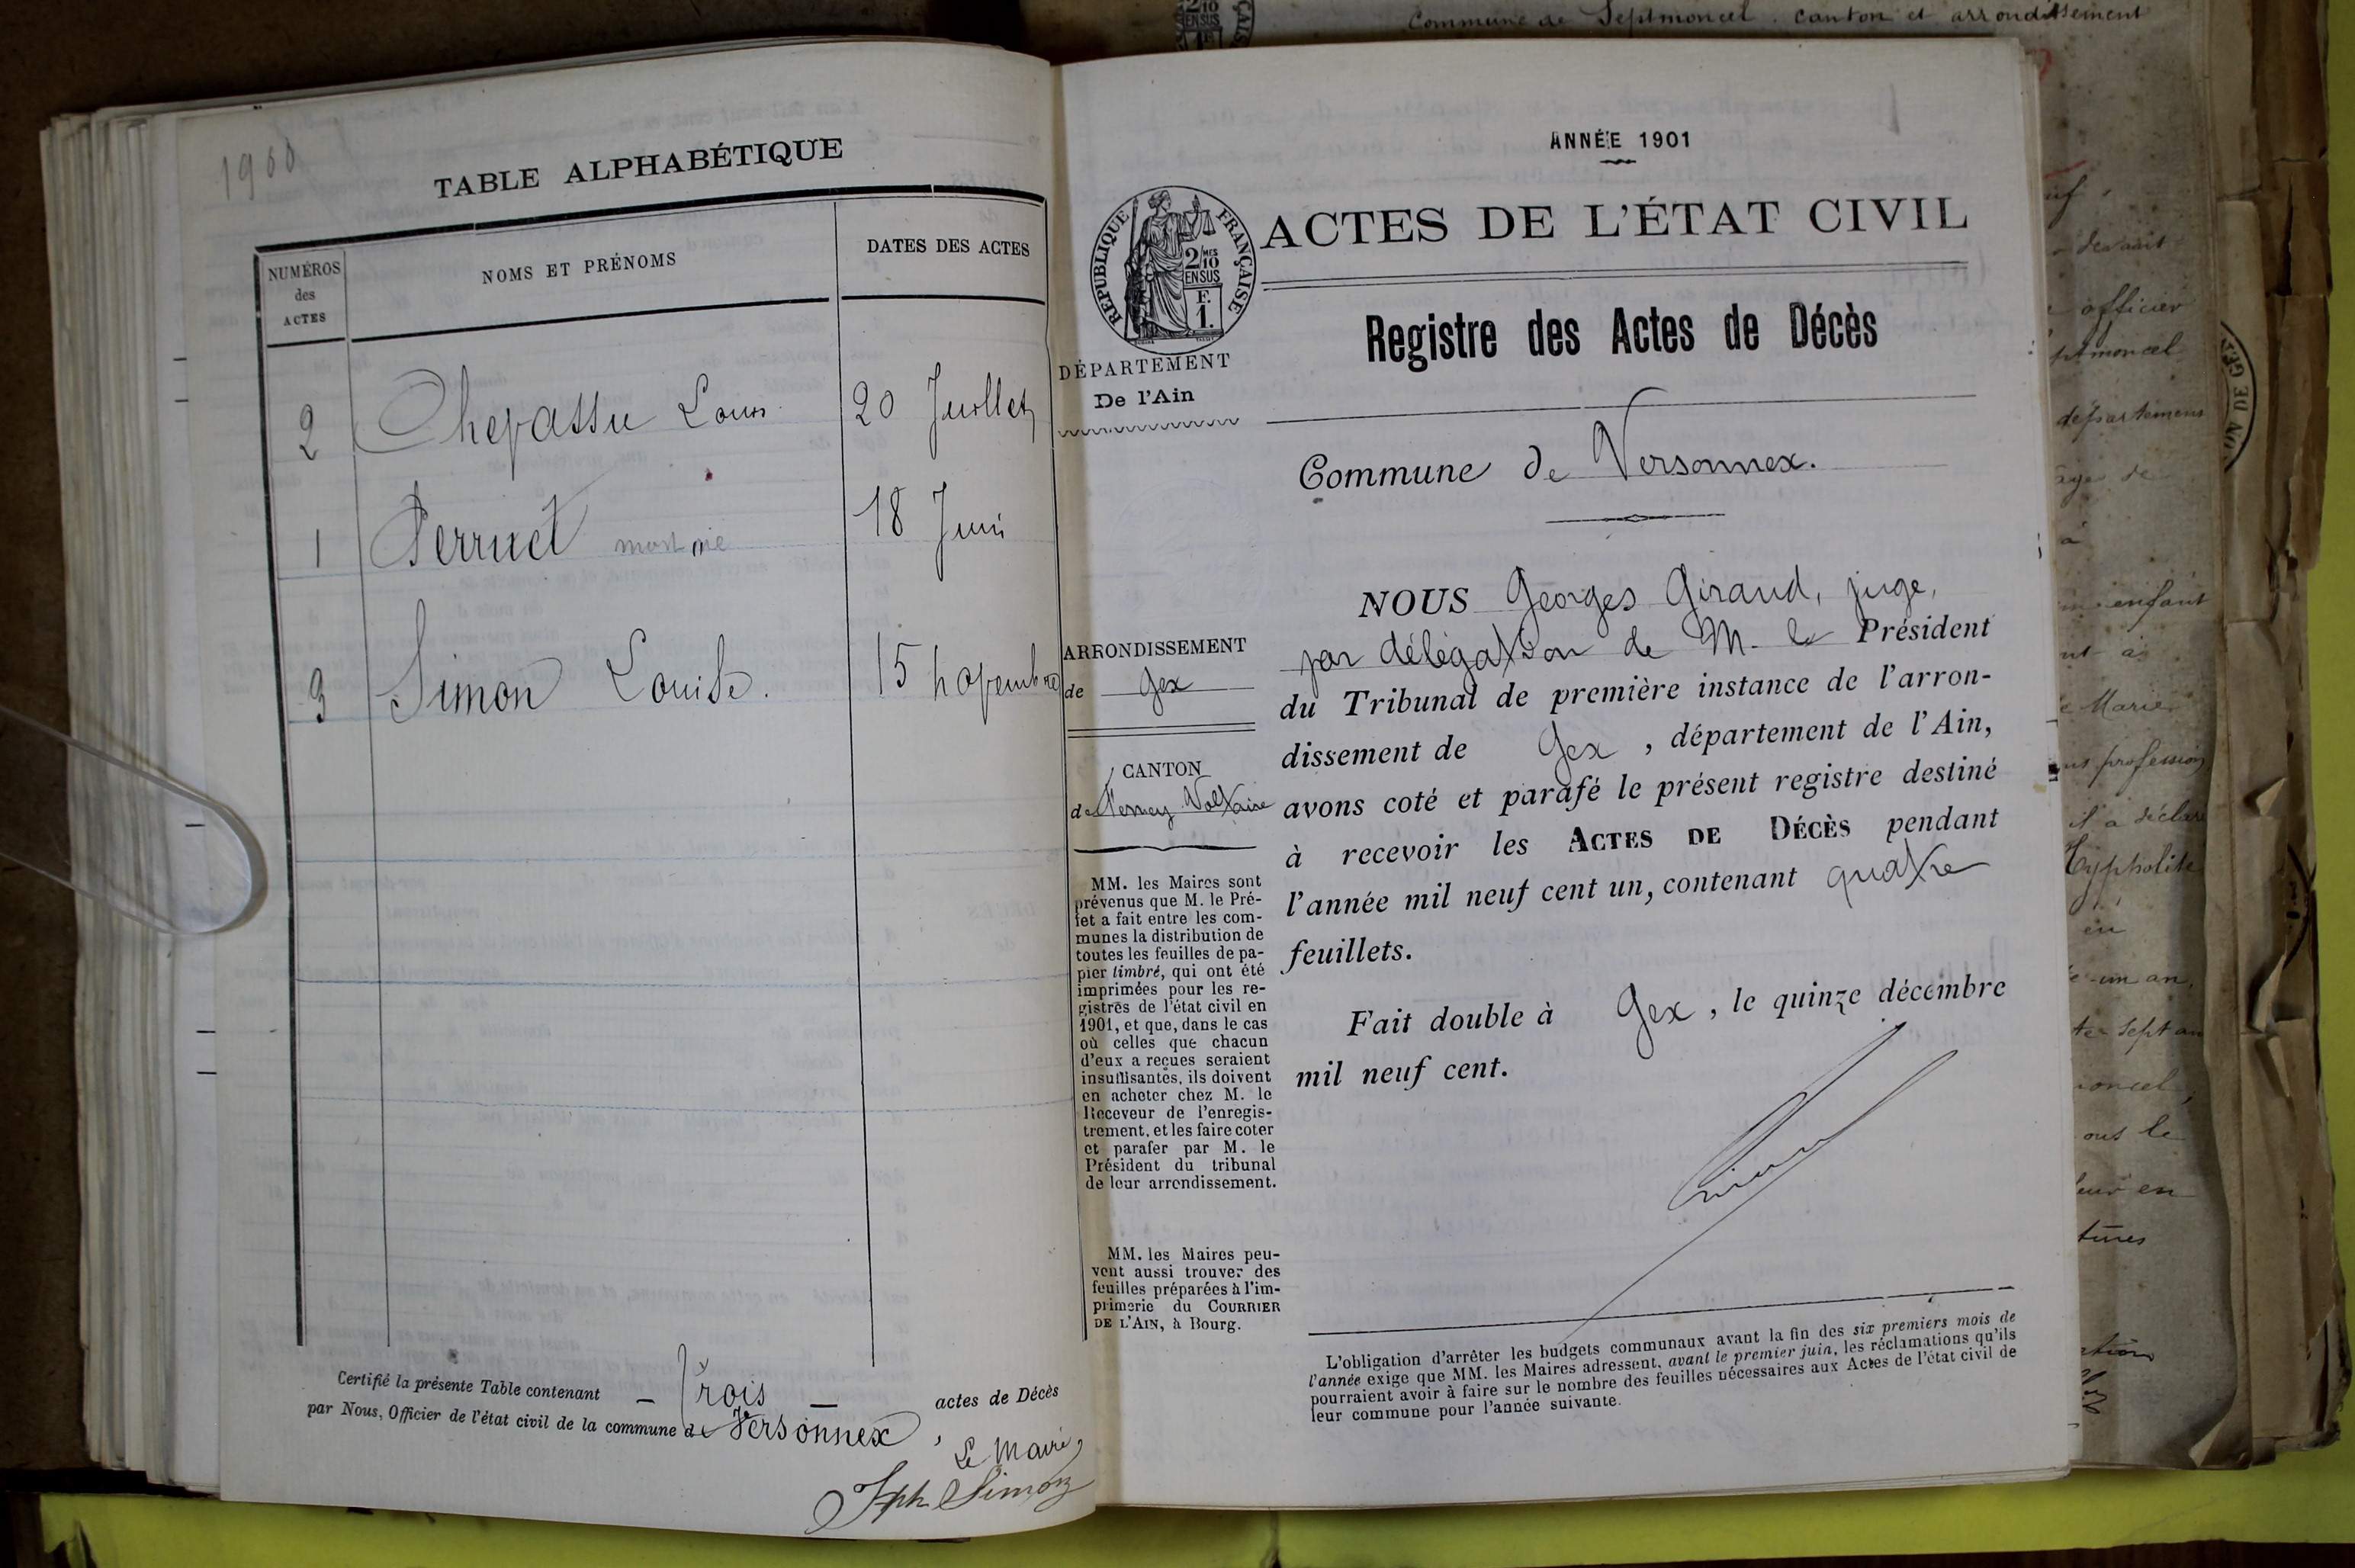 1900
TABLE ALPHABÉTIQUE
NUMÉROS
des
ACTES
NOMS ET PRÉNOMS
DATES DES ACTES
2 Chevassu Louis 20 Juillet
1 Perruet mort né 18 Juin
3 Simon Louise. 15 novembre
Certifié la présente Table contenant — Trois — actes de Décès
par Nous, Officier de l'état civil de la commune de Versonnex,
Le Maire,
Jph Simon
ANNÉE 1901
RÉPUBLIQUE FRANÇAISE
2/10 MES
EN SUS
F.
1.
ACTES DE L'ÉTAT CIVIL
Registre des Actes de Décès
DÉPARTEMENT
De l'Ain
Commune de Versonnex.
ARRONDISSEMENT
de Gex
CANTON
de Ferney-Voltaire
MM. les Maires sont
prévenus que M. le Pré-
fet a fait entre les com-
munes la distribution de
toutes les feuilles de pa-
pier timbré, qui ont été
imprimées pour les re-
gistres de l'état civil en
1901, et que, dans le cas
où celles que chacun
d'eux a reçues seraient
insuffisantes, ils doivent
en acheter chez M. le
Receveur de l'enregis-
trement, et les faire coter
et parafer par M. le
Président du tribunal
de leur arrondissement.
MM. les Maires peu-
vent aussi trouver des
feuilles préparées à l'im-
primerie du COURRIER
DE L'AIN, à Bourg.
NOUS Georges Giraud, juge,
par délégation de M. le Président
du Tribunal de première instance de l'arron-
dissement de Gex, département de l'Ain,
avons coté et parafé le présent registre destiné
à recevoir les ACTES DE DÉCÈS pendant
l'année mil neuf cent un, contenant quatre
feuillets.
Fait double à Gex, le quinze décembre
mil neuf cent.
L'obligation d'arrêter les budgets communaux avant la fin des six premiers mois de
l'année exige que MM. les Maires adressent, avant le premier juin, les réclamations qu'ils
pourraient avoir à faire sur le nombre des feuilles nécessaires aux Actes de l'état civil de
leur commune pour l'année suivante.
Commune de Septmoncel canton et arrondissement
devant
officier
ptmoncel
département
âgé de
à
enfant
Marie
profession
il a déclaré
Hyppolite
en
un an,
sept an
moncel,
ous le
en
tures